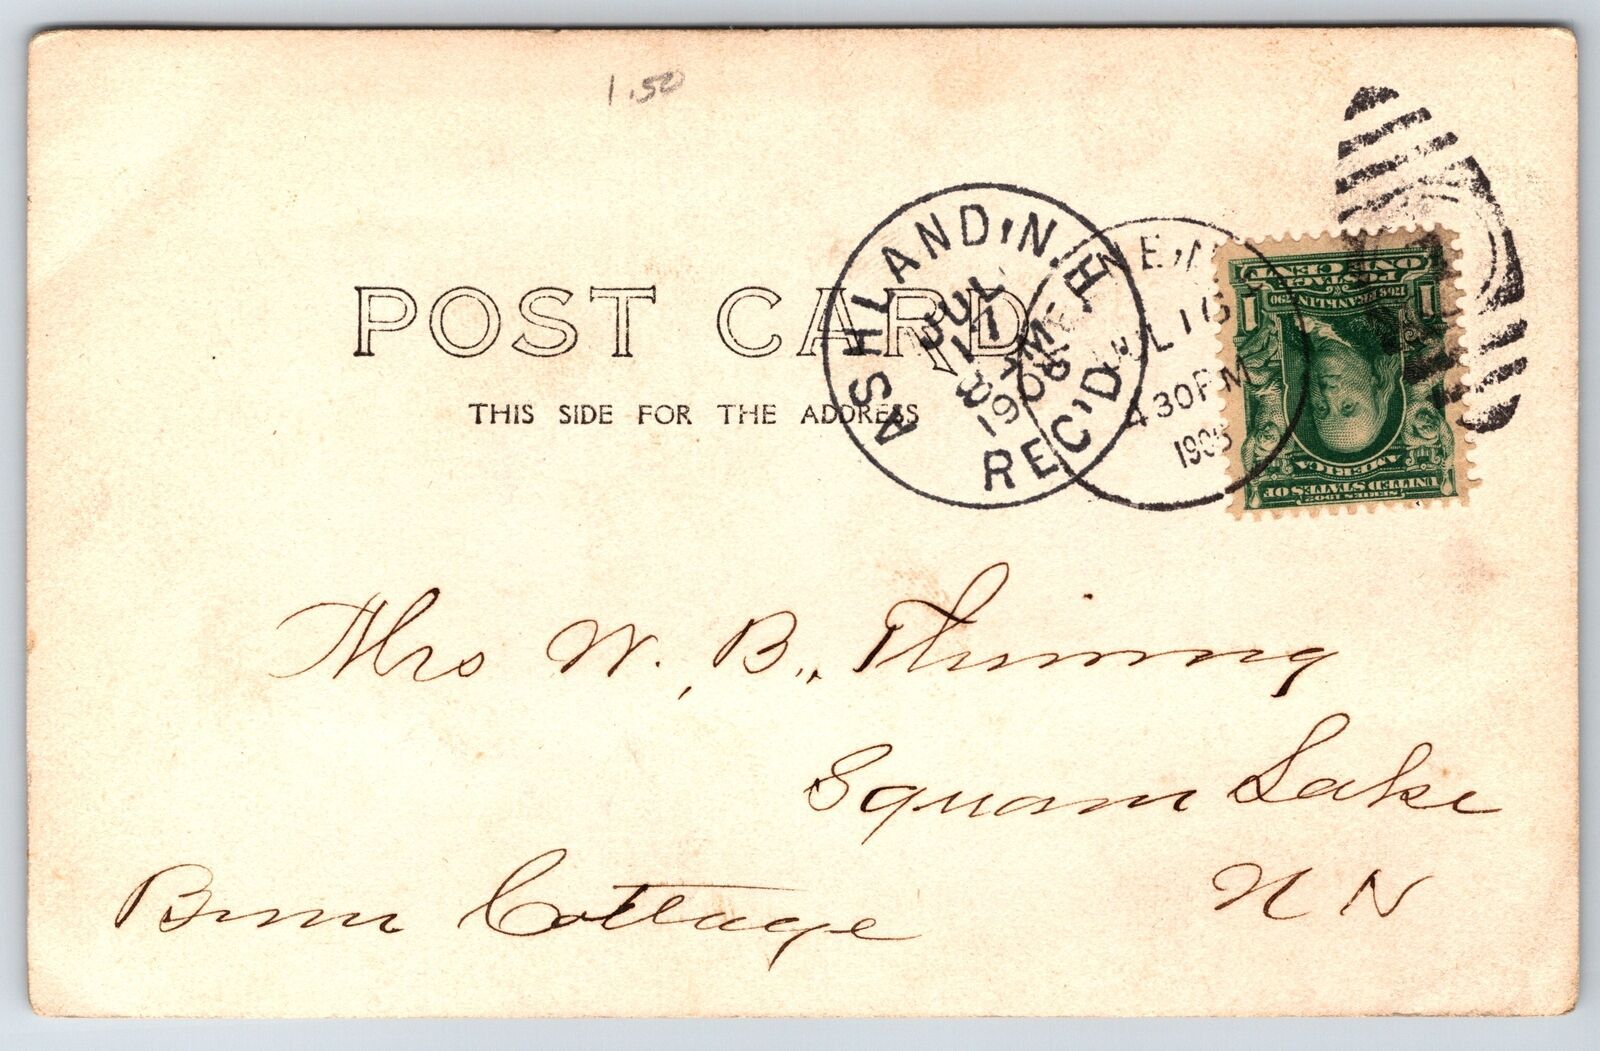 1.50
POST CARD
THIS SIDE FOR THE ADDRESS
ASHLAND, N.H.
JUL
17
8 AM
1906
REC'D
JUL 16
4 30 PM
1906
ONE CENT
POSTAGE
1706 FRANKLIN 1790
1 1
UNITED STATES OF
AMERICA
SERIES 1902
Mrs W. B., Thining
Squam Lake
N N
Cottage